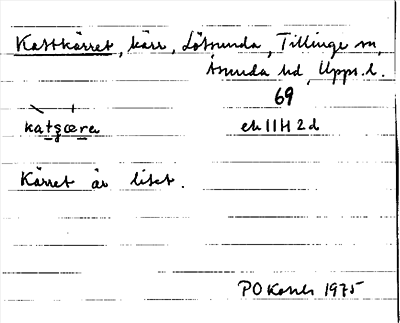 Kattkärret, kärr, Lötsunda, Tillinge sn,
Åsunda hd, Upps. l.
69
katʂæra
ek 11H 2d
Kärret är litet.
PO 1975